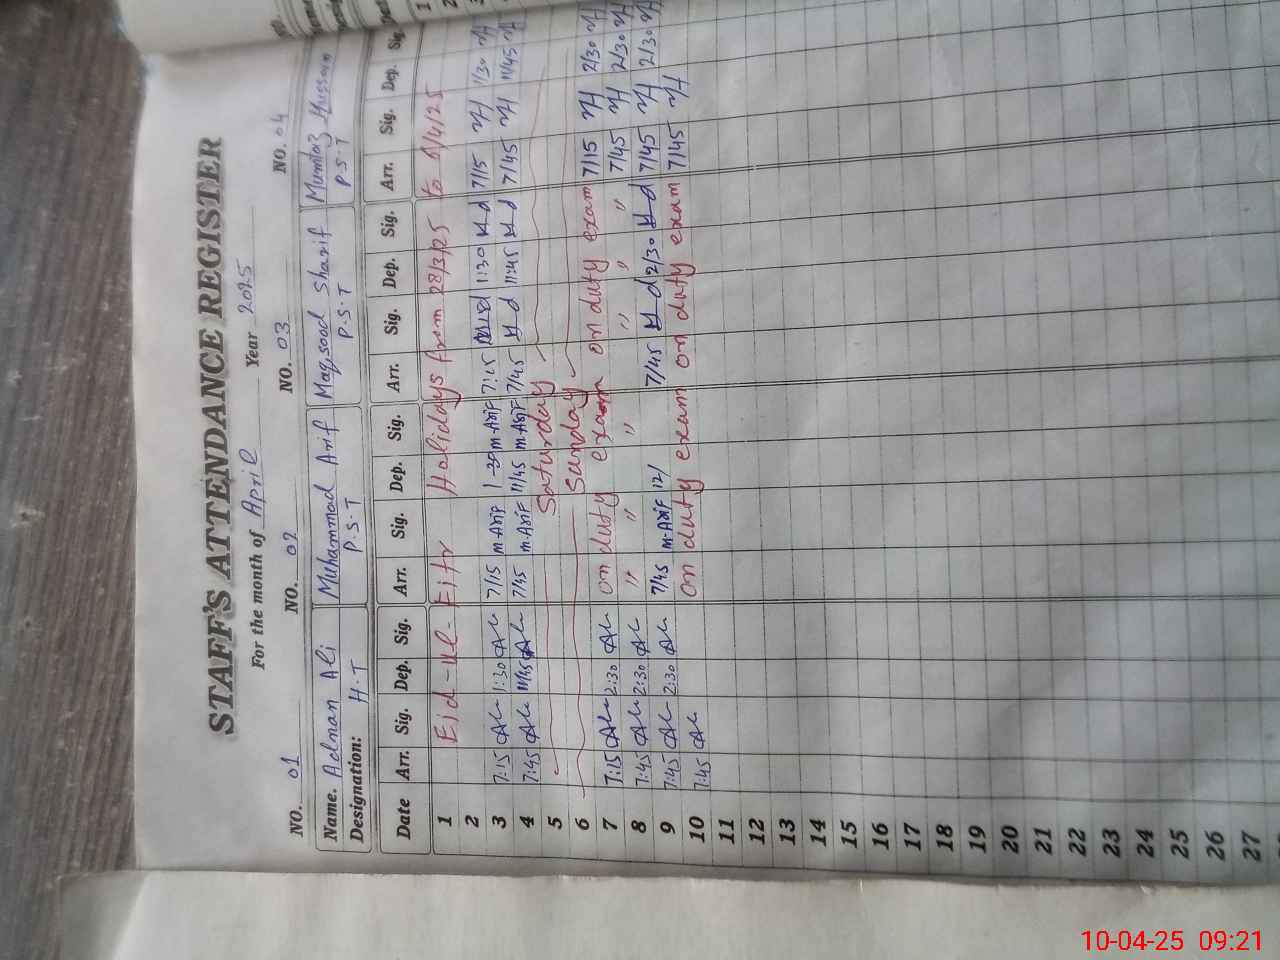 STAFF'S ATTENDANCE REGISTER
For the month of April Year 2025
NO. 01 NO. 02 NO. 03 NO. 04
Name. Adnan Ali Muhammad Arif Maqsood Sharif Mumtaz Hussain
Designation: H.T P.S.T P.S.T P.S.T
Date Arr. Sig. Dep. Sig. Arr. Sig. Dep. Sig. Arr. Sig. Dep. Sig. Arr. Sig. Dep. Sig.
1 Eid-ul-Fitr Holidays from 28/3/25 to /4/25
2
3 7:15 1:30 7/15 m.Arif 1-30 m.Arif 7:15 1:30 7/15 1/30
4 7:45 11/45 7/45 m.Arif 11/45 m.Arif 7/45 11:45 7/45 11/45
5 Saturday
6 Sunday
7 7:15 2:30 on duty exam on duty exam 7/15 2/30
8 7:45 2:30 " " " " " " 7/45 2/30
9 7:45 2:30 7/45 m.Arif 12/ 7/45 2/30 7/45 2/30
10 7:45 on duty exam on duty exam 7/45
11
12
13
14
15
16
17
18
19
20
21
22
23
24
25
26
27
10-04-25 09:21